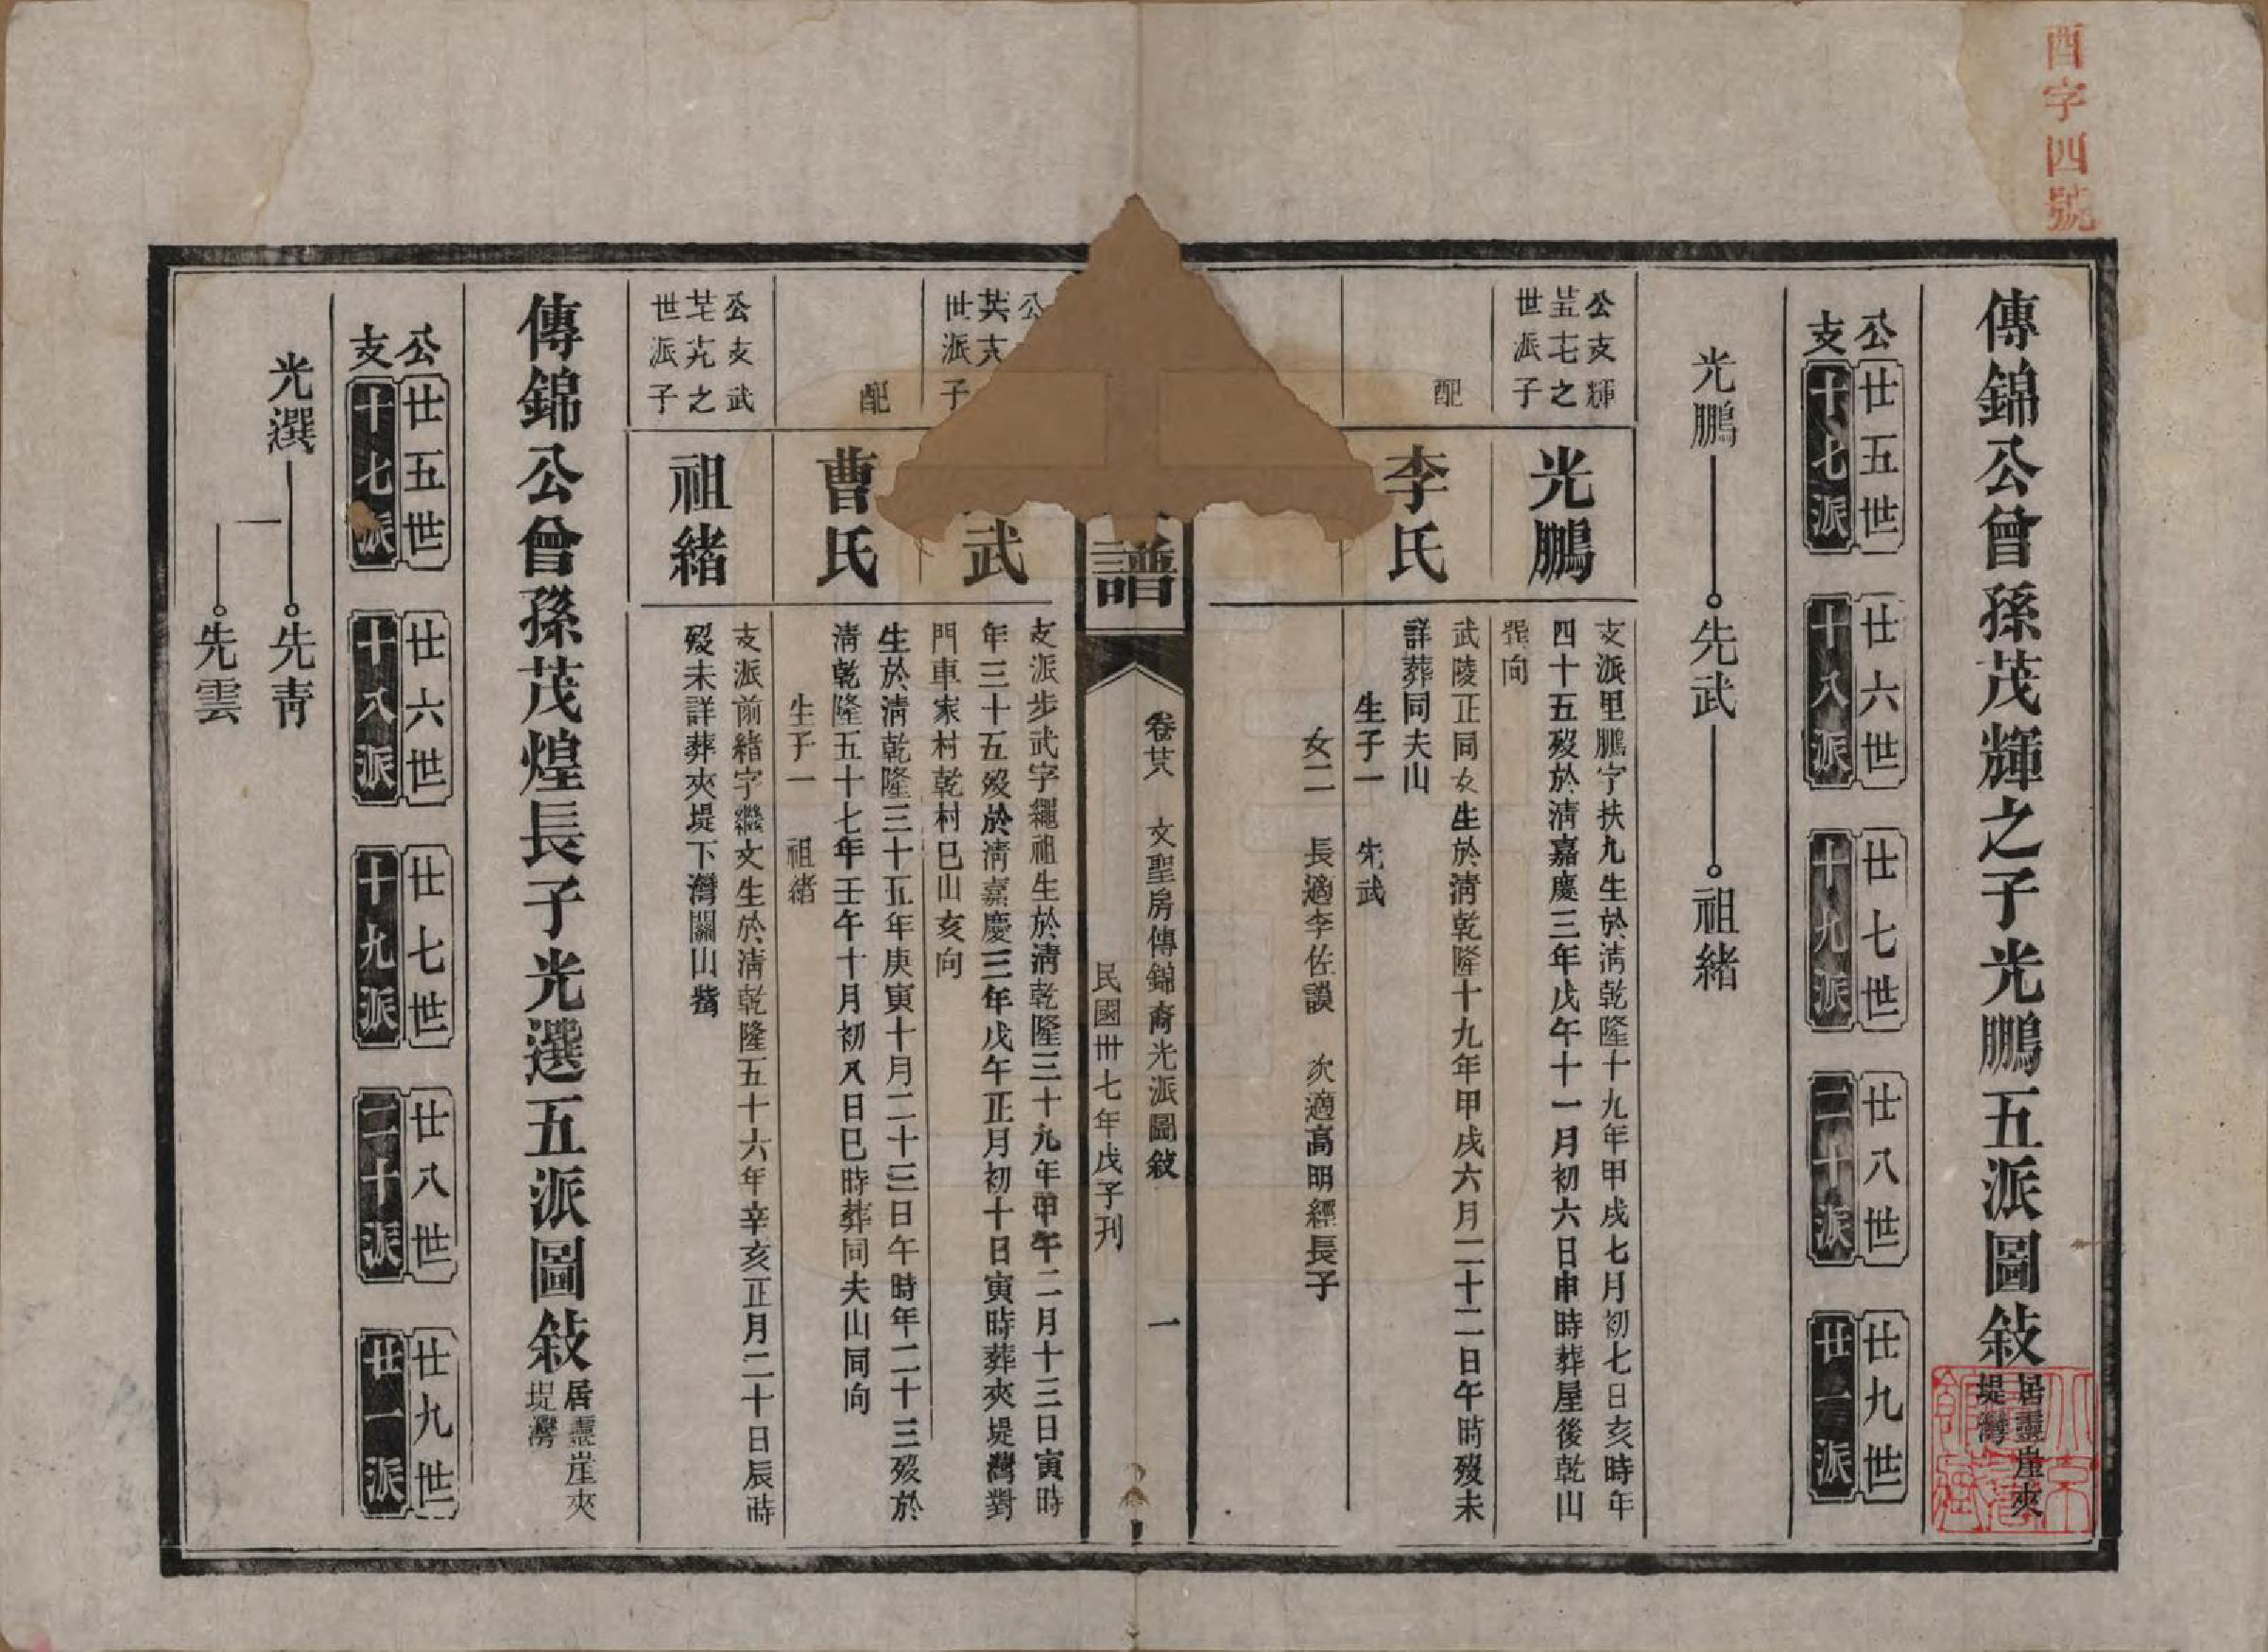 酉字四號
傳錦公曾孫茂輝之子光鵬五派圖敍
居靈崖夾
堤灣
公支
廿五世 十七派
廿六世 十八派
廿七世 十九派
廿八世 二十派
廿九世 廿一派
光鵬 先武 祖緒
公支輝
之子
世派
光鵬
支派里鵬字扶九生於淸乾隆十九年甲戌七月初七日亥時年
四十五歿於淸嘉慶三年戊午十一月初六日申時葬屋後乾山
巽向
配
李氏
武陵正同女生於淸乾隆十九年甲戌六月二十二日午時歿未
詳葬同夫山
生子一 先武
女二 長適李佐謨 次適高明經長子
譜
卷廿八 文聖房傳錦裔光派圖敍 一
民國卅七年戊子刊
公
世派子
武
支派步武字繩祖生於淸乾隆三十九年甲午二月十三日寅時
年三十五歿於淸嘉慶三年戊午正月初十日寅時葬夾堤灣對
門車家村乾村巳山亥向
配
曹氏
生於淸乾隆三十五年庚寅十月二十三日午時年二十三歿於
淸乾隆五十七年壬午十月初八日巳時葬同夫山同向
生子一 祖緒
公支武
之
世派子
祖緒
支派前緒字繼文生於淸乾隆五十六年辛亥正月二十日辰時
歿未詳葬夾堤下灣關山觜
傳錦公曾孫茂煌長子光選五派圖敍
居靈崖夾
堤灣
公支
廿五世 十七派
廿六世 十八派
廿七世 十九派
廿八世 二十派
廿九世 廿一派
光選 先靑
先雲